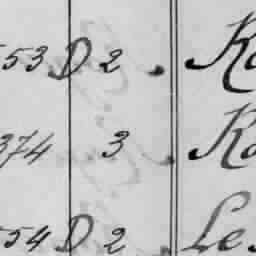 553 D 2 . Ka
374 3 . Ka
554 D 2 . Le